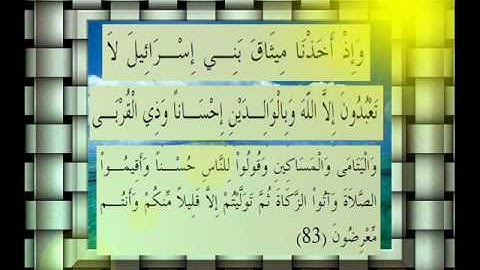 وَإِذْ أَخَذْنَا مِيثَاقَ بَنِي إِسْرَائِيلَ لاَ
تَعْبُدُونَ إِلاَّ اللّهَ وَبِالْوَالِدَيْنِ إِحْسَاناً وَذِي الْقُرْبَى
وَالْيَتَامَى وَالْمَسَاكِينِ وَقُولُواْ لِلنَّاسِ حُسْناً وَأَقِيمُواْ
الصَّلاَةَ وَآتُواْ الزَّكَاةَ ثُمَّ تَوَلَّيْتُمْ إِلاَّ قَلِيلاً مِّنكُمْ وَأَنتُم
مِّعْرِضُونَ (83)